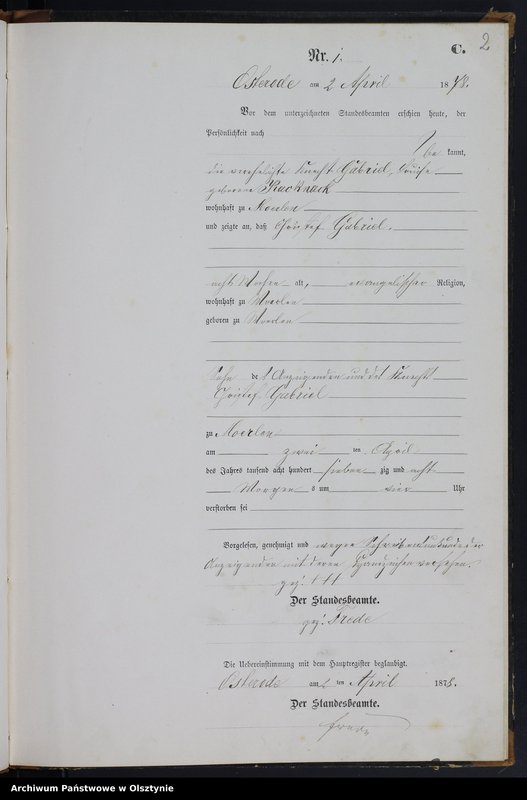 C. 2
Nr. 1.
Osterode am 2 April 1878.
Vor dem unterzeichneten Standesbeamten erschien heute, der
Persönlichkeit nach
be kannt,
die verehelichte Knecht Gabriel,
geborene
wohnhaft zu Moerlen
und zeigte an, daß Christof Gabriel,
acht Wochen alt, evangelischer Religion,
wohnhaft zu Moerlen
geboren zu Moerlen
Sohn der Anzeigenden und des Knecht
Christof Gabriel
zu Moerlen
am zwei ten April
des Jahres tausend acht hundert sieben zig und acht
Morgen s um vier Uhr
verstorben sei
Vorgelesen, genehmigt und wegen Schreibensunkunde der
Anzeigenden mit deren Handzeichen versehen.
gez. †††
Der Standesbeamte.
gez. Frede
Die Uebereinstimmung mit dem Hauptregister beglaubigt.
Osterode am 2 ten April 1878.
Der Standesbeamte.
Frede
Archiwum Państwowe w Olsztynie